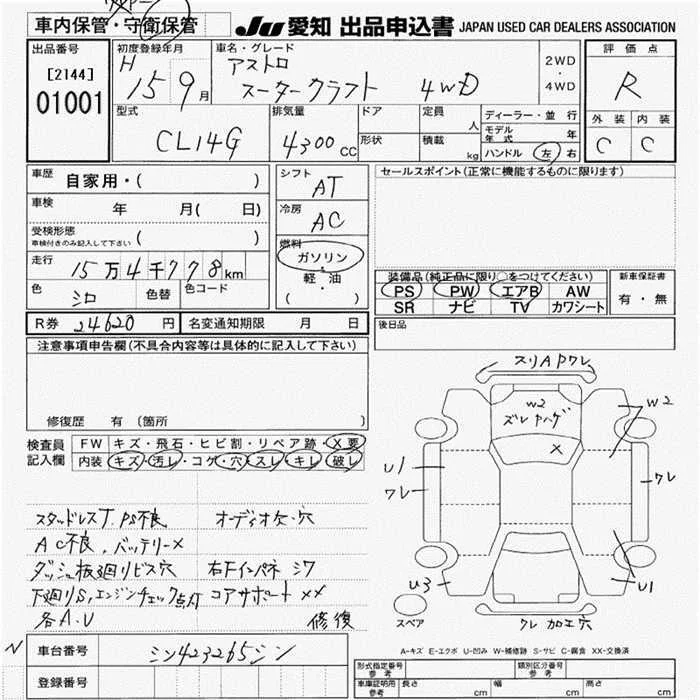 車内保管・守衛保管
JU 愛知 出品申込書 JAPAN USED CAR DEALERS ASSOCIATION
出品番号
[2144]
01001
初度登録年月
H 15 9月
車名・グレード
アストロ
スータークラフト 4WD
2WD
・
4WD
評価点
R
外装 内装
C C
型式
CL14G
排気量
4300 CC
ドア
形状
定員
人
積載
kg
ディーラー・並行
モデル年式 年
ハンドル 左 右
車歴 自家用・( )
車検 年 月( 日)
受検形態
車検付きのみ記入して下さい ( )
走行 15万4千778km
色 シロ 色替 色コード
シフト
AT
冷房
AC
燃料
ガソリン
軽・油
( ・ )
R券 24620円 名変通知期限 月 日
セールスポイント(正常に機能するものに限ります)
装備品(純正品に限り○をつけてください)
PS PW エアB AW
SR ナビ TV カワシート
新車保証書
有・無
後日品
注意事項申告欄(不具合内容等は具体的に記入して下さい)
修復歴 有 〔箇所 〕
検査員
記入欄
FW キズ・飛石・ヒビ割・リペア跡・X要
内装 キズ・汚レ・コゲ・穴・スレ・キレ・破レ
スタッドレスT PS不良 オーディオケ・穴
AC不良、バッテリー×
ダッシュ板廻りビス穴 右Fインパネ シワ
下廻りS,エンジンチェック点灯 コアサポート ××
各A.U 修復
N 車台番号 シン423265シン
登録番号
スリAPワレ
W2
ズレ ハゲ
×
W2
U1
ワレ
ワレ
U3
U1
ワレ 加工穴
スペア
A-キズ E-エクボ U-凹み W-補修跡 S-サビ C-腐食 XX-交換済
形式指定番号
参考
類別区分番号
参考
車庫証明用
参考
長さ cm 幅 cm 高さ cm